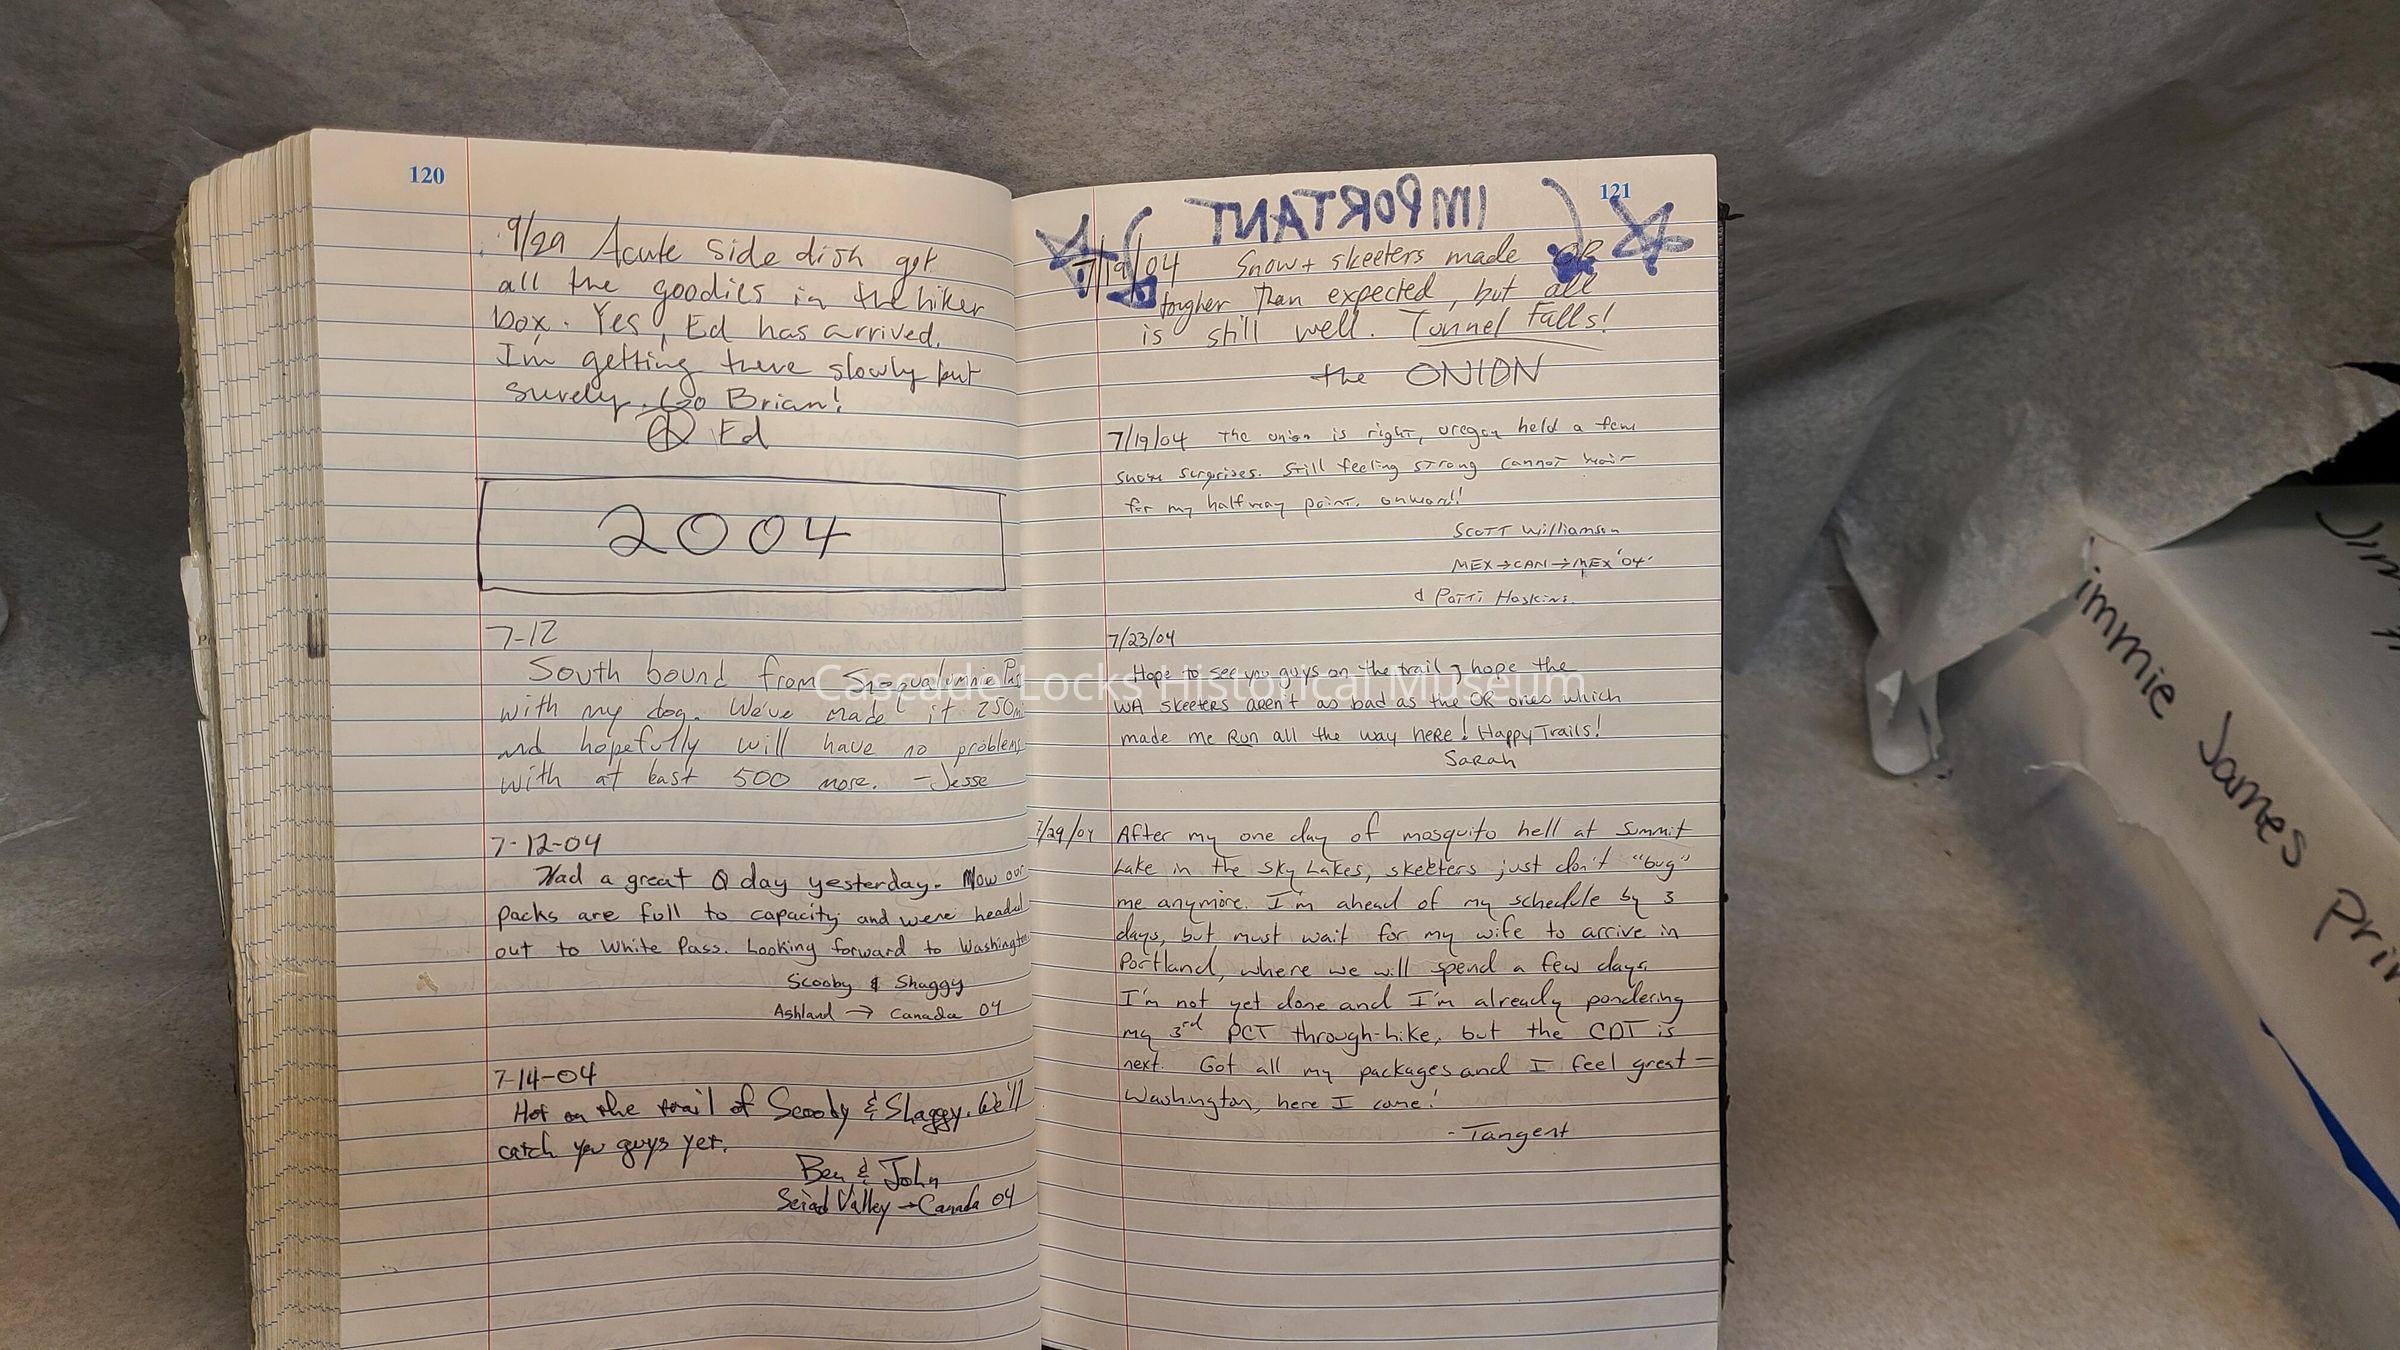 120
9/29 Acute side dish got
all the goodies in the hiker
box. Yes, Ed has arrived.
I'm getting there slowly but
surely. Go Brian!
Ed
2004
7-12
South bound from Snoqualmie Pass
with my dog. We've made it 250mi
and hopefully will have no problems
with at least 500 more. - Jesse
7-12-04
Had a great 0 day yesterday. Now our
packs are full to capacity and were headed
out to White Pass. Looking forward to Washington
Scooby & Shaggy
Ashland → Canada 04
7-14-04
Hot on the trail of Scooby & Shaggy. We'll
catch you guys yet.
Ben & John
Seiad Valley → Canada 04
121
IMPORTANT
7/19/04 Snow + skeeters made OR
tougher than expected, but all
is still well. Tunnel Falls!
the ONION
7/19/04 The onion is right, oregon held a few
snow surprises. Still feeling strong cannot wait
for my halfway point. onward!
Scott Williamson
MEX→CAN→MEX '04'
& Patti Haskins.
7/23/04
Hope to see you guys on the trail, hope the
WA skeeters aren't as bad as the OR ones which
made me Run all the way here! Happy Trails!
Sarah
7/29/04 After my one day of mosquito hell at Summit
Lake in the Sky Lakes, skeeters just don't "bug"
me anymore. I'm ahead of my schedule by 3
days, but must wait for my wife to arrive in
Portland, where we will spend a few days.
I'm not yet done and I'm already pondering
my 3rd PCT through-hike, but the CDT is
next. Got all my packages and I feel great –
Washington, here I come!
- Tangent
Cascade Locks Historical Museum
immie James Prin
Jim